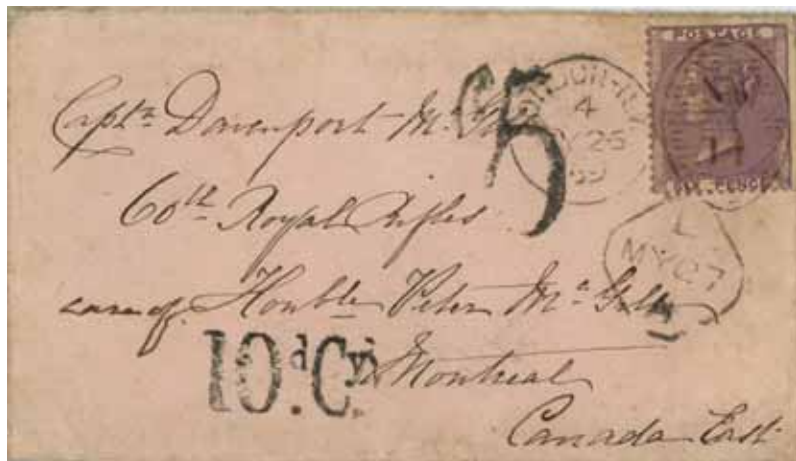 POSTAGE
4
MY 26
59
N.W
11
SIX PENCE
5
L
MY 27
Capt.n Davenport
60th Royal Rifles
care of Honble Peter McGill
10d.Cy.
Montreal
Canada East